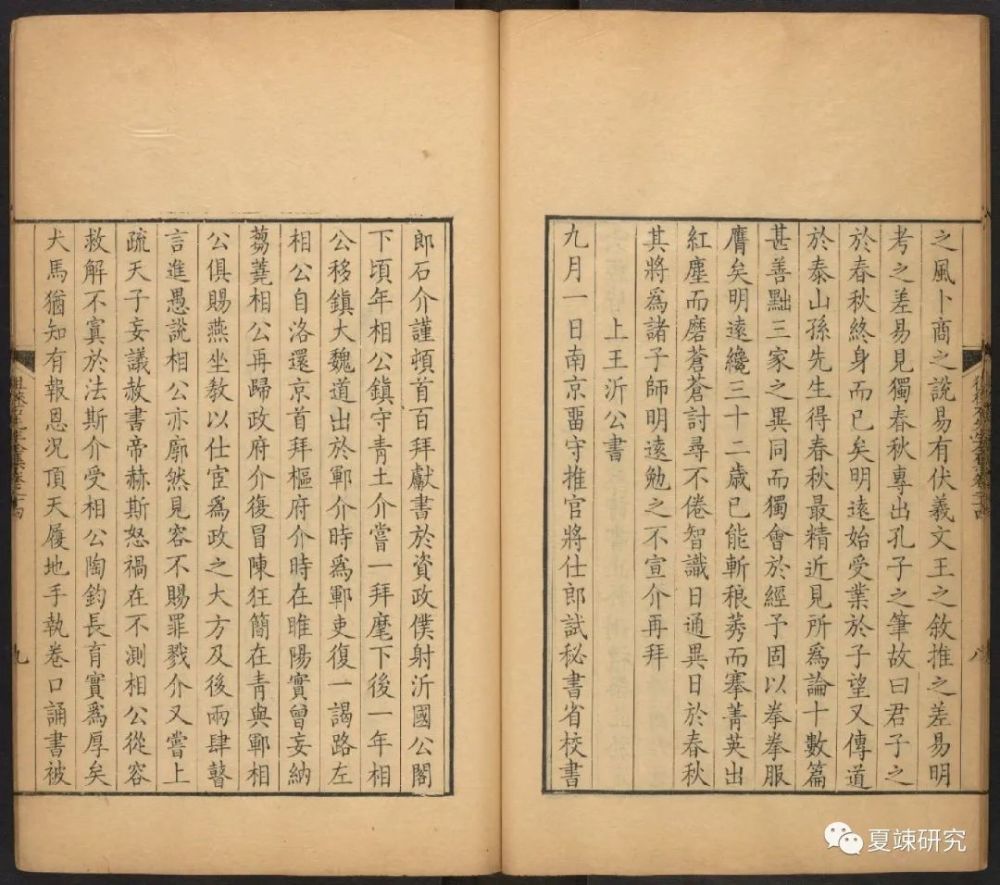 之風卜商之說易有伏義文王之敘推之差易明
考之差易見獨春秋專出孔子之筆故曰君子之
於春秋終身而已矣明遠始受業於子望又傳道
於泰山孫先生得春秋最精近見所為論十數篇
甚善黜三家之異同而獨會於經予固以拳拳服
膺矣明遠纔三十二歲已能斬稂莠而搴菁英出
紅塵而磨蒼蒼討尋不倦智識日通異日於春秋
其將為諸子師明遠勉之不宣介再拜
上王沂公書
九月一日南京畱守推官將仕郎試秘書省校書
郎石介謹頓首百拜獻書於資政僕射沂國公閤
下頃年相公鎮守青土介嘗一拜麾下後一年相
公移鎮大魏道出於鄆介時為鄆吏復一謁路左
相公自洛還京首拜樞府介時在睢陽實曾妄納
蒭蕘相公再歸政府介復冒陳狂簡在青與鄆相
公俱賜燕坐教以仕宦為政之大方及後兩肆瞽
言進愚說相公亦廓然見容不賜罪戮介又嘗上
疏天子妄議赦書帝赫斯怒禍在不測相公從容
救解不寘於法斯介受相公陶鈞長育實為厚矣
犬馬猶知有報恩況頂天履地手執卷口誦書被
八
九
夏竦研究